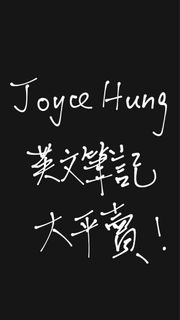 Joyce Hung
英文筆記
大平賣！